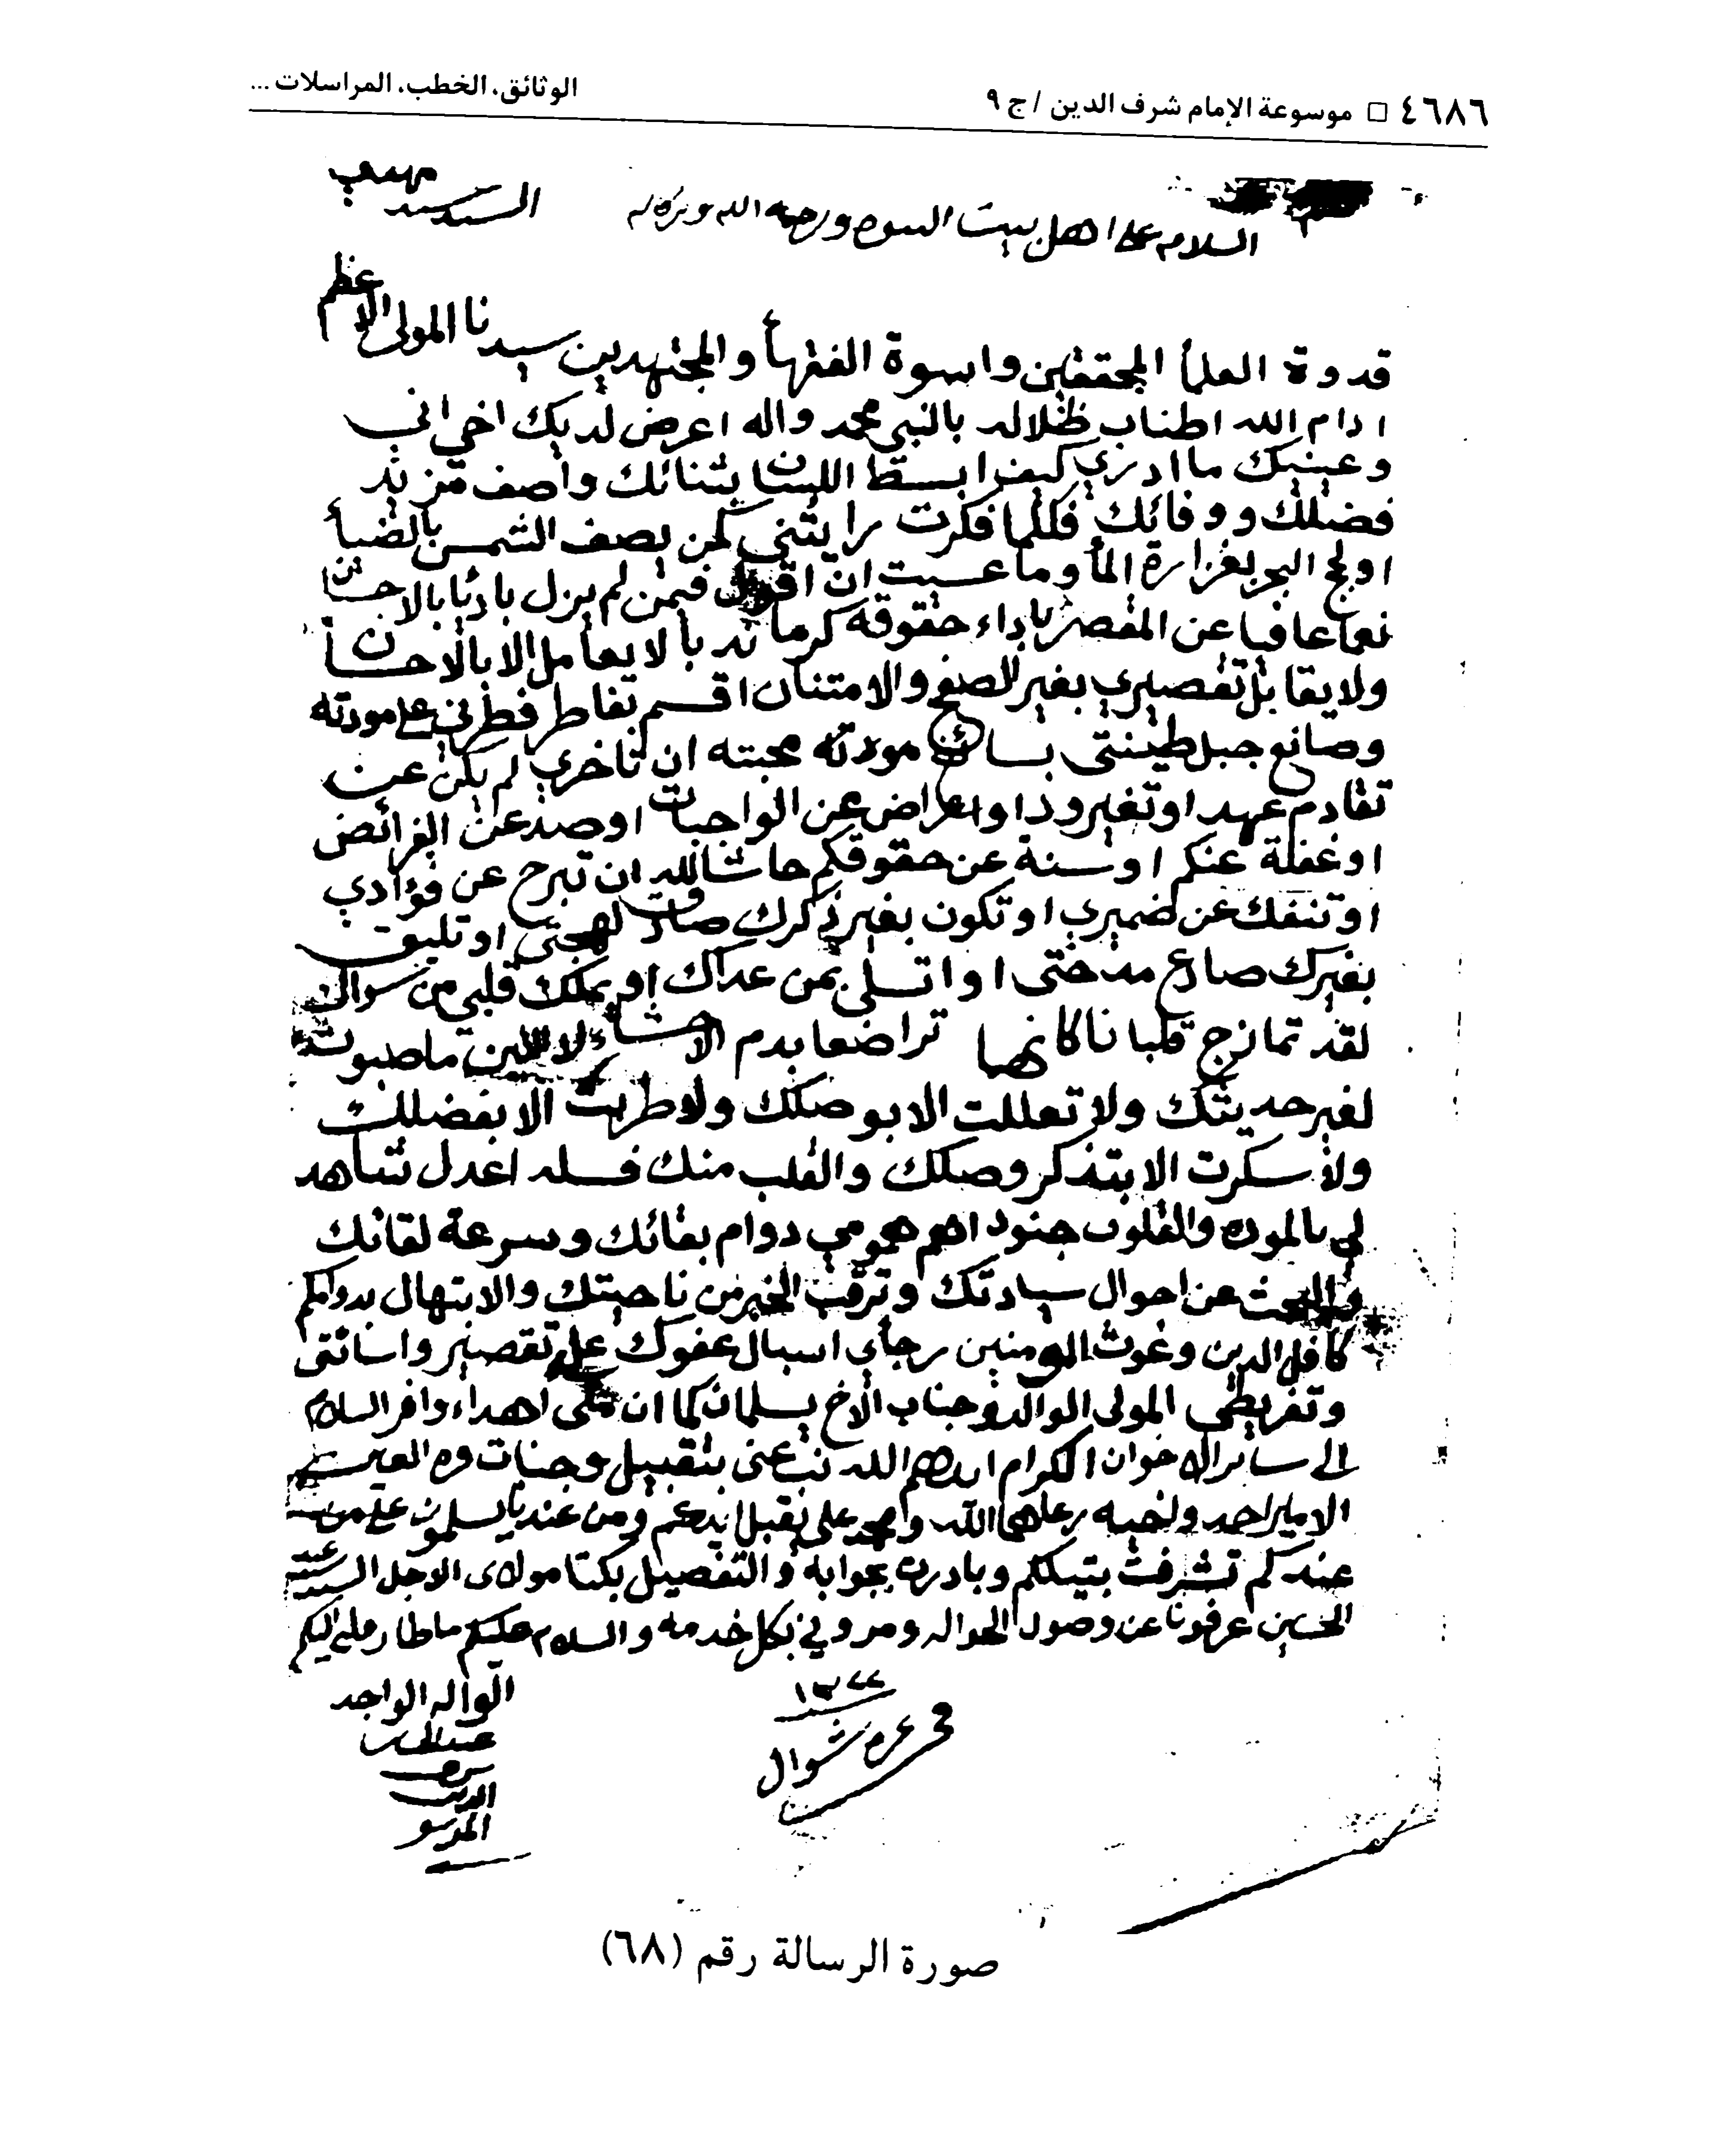 ٤٦٨٦ □ موسوعة الإمام شرف الدين / ج ٩
الوثائق، الخطب، المراسلات ...
السلام على اهل بيت النبوه ورحمة الله وبركاته
السيد
قدوة العلمأ المحققين واسوة الفقهأ والمجتهدين سيدنا المولى الاعظم
ادام الله اطناب ظلاله بالنبي محمد واله اعرض لديك اخي اني
وعينيك ما ادري كيف ابسط اللسان بثنائك واصف مزيد
فضلك ووفائك فكلما فكرت رايتني كمن يصف الشمس بالضيأ
او لج البحر بغزارة المأ وما عسيت ان اقول فيمن لم يزل باديًا بالاحسان
نعما عافيا عن المقصر باداء حقوقه كرما ندبا لا يعامل الا بالاحسان
ولا يقابل تقصيري بغير الصفح والامتنان اقسم بفاطر فطرني على مودته
وصانع جبل طينتي مودته محبته ان تاخري لم يكن عن
تقادم عهد او تغير وداد او اعراض عن الواجبات او صد عن الفرائض
او غفلة عنكم او سنة عن حقوقكم حاشا لله ان تبرح عن فؤادي
او تنفك عن ضميري او تكون بغير ذكرك لهجتي او تليق
بغيرك مدحتي او اتسلى بمن عداك او يملك قلبي من سواك
لقد تمازج قلبانا كانهما تراضعا بدم الاحشاء لا اللبن ما صبوت
لغير حديثك ولا تعللت الا بوصلك ولا طربت الا بفضلك
ولا سكرت الا بتذكر وصلك والقلب منك فسله اعدل شاهد
لي بالموده والقلوب جنود اهم همومي دوام بقائك وسرعة لقائك
والبحث عن احوال سيادتك وترقب الخبر من ناحيتك والابتهال بدوامكم
كافل الدين وغوث المومنين رجاي اسبال عفوك على تقصيري واسائتي
وتفريطي المولى الوالد وجناب الاخ يسلمان كما ان اهداء وافر السلام
الى ساير الاخوان الكرام ايدهم الله نب عني بتقبيل وجنات قره العين
الامير احمد واخيه رعاهما الله ومحمد على يقبل يديكم ومن عندنا يسلمون على من
عندكم تشرفت وبادرت بجوابه والتفصيل بكتا مولاى الاجل السيد عبد
الحسين عرفونا عن وصول الحواله ومروني بكل خدمه والسلام عليكم
الواله الواجد
عبد الحسين
شرف
الدين
الموسوي
في غرة شوال
١٣٢٢
صورة الرسالة رقم (٦٨)